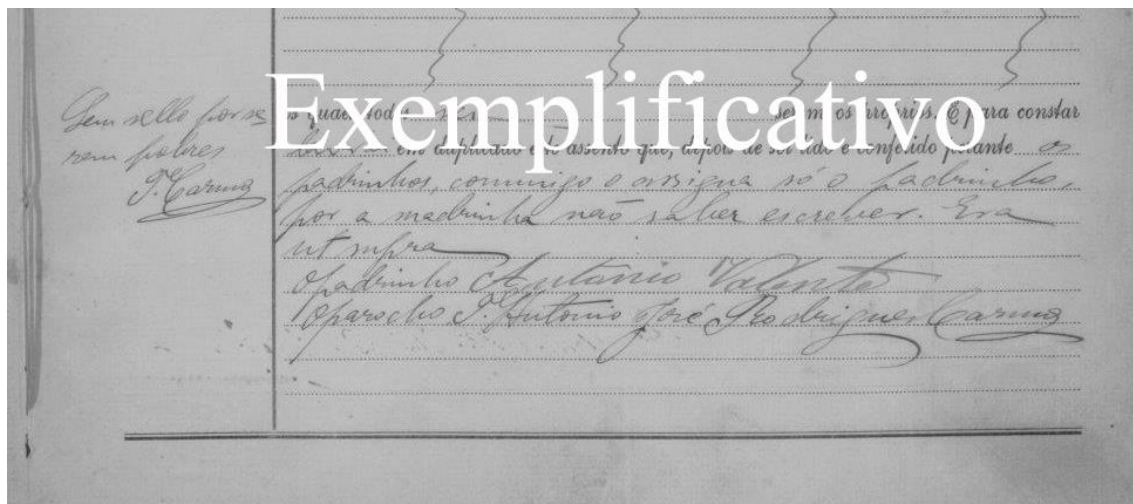 Exemplificativo
Sem sello por se
rem pobres
P. Carmo
os quaes todos sei serem os proprios. E para constar
em duplicado este assento que, depois de ser lido e conferido perante os
padrinhos, commigo o assigna só o padrinho,
por a madrinha não saber escrever. Era
ut supra
O padrinho Antonio Valente
O parocho P. Antonio José Rodrigues Carmo